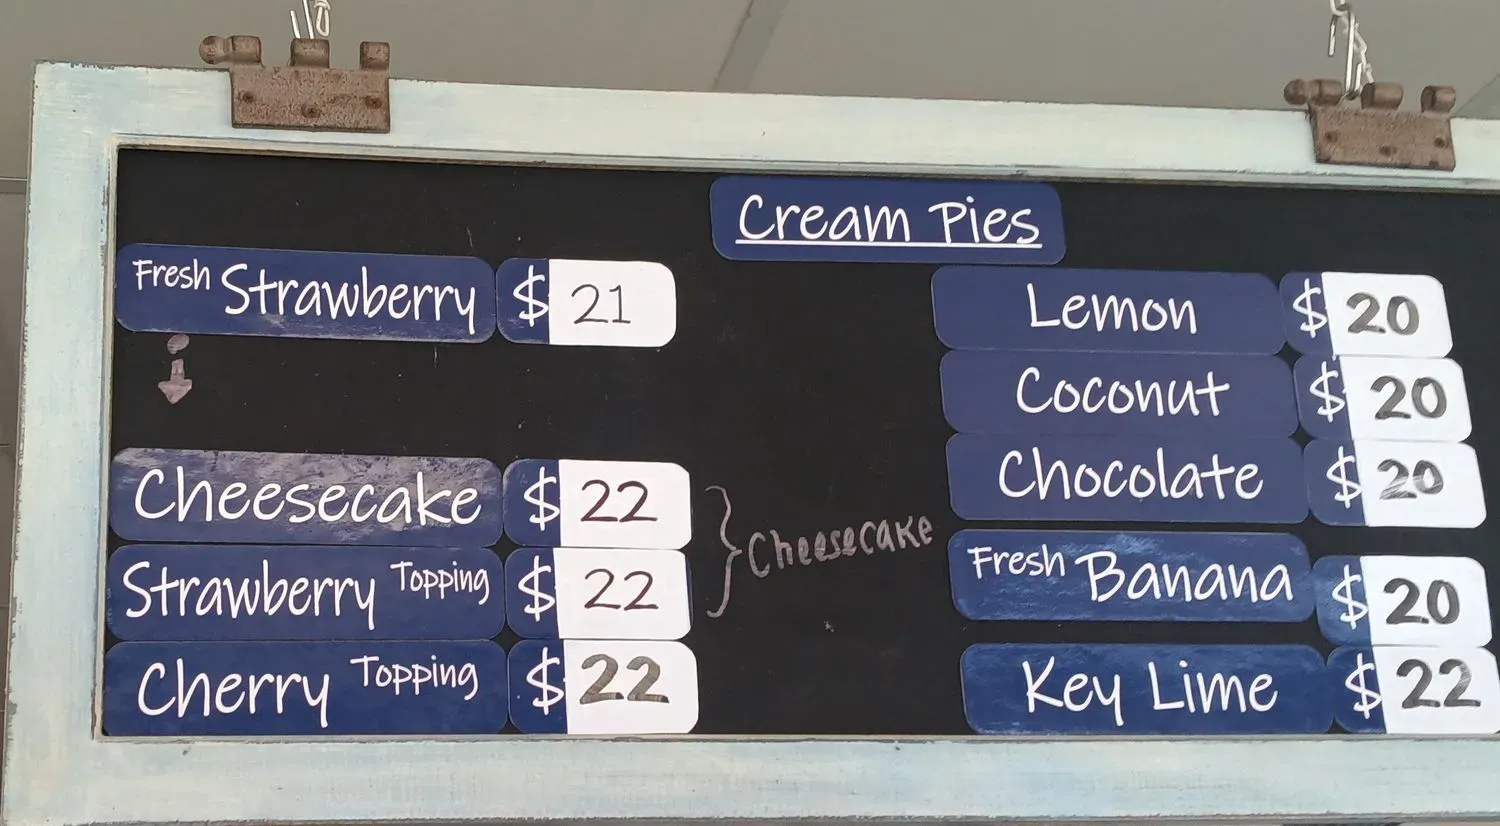 Cream Pies
Fresh Strawberry $ 21
Cheesecake $ 22
Strawberry Topping $ 22
Cherry Topping $ 22
Cheesecake
Lemon $ 20
Coconut $ 20
Chocolate $ 20
Fresh Banana $ 20
Key Lime $ 22